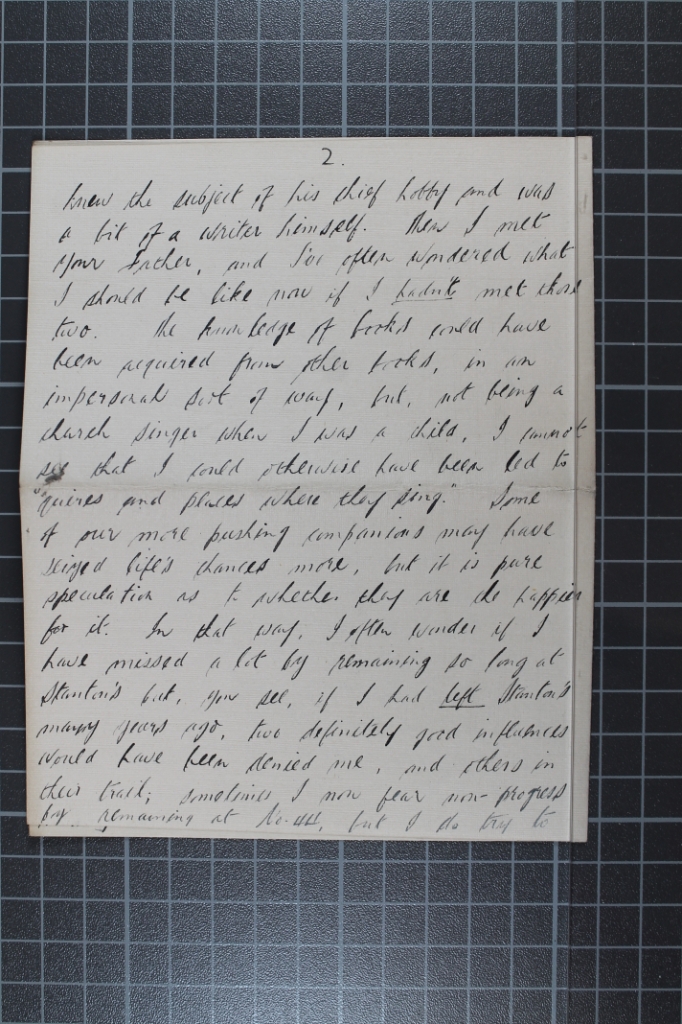 2.
knew the subject of his chief hobby and was
a bit of a writer himself. Then I met
your Father, and I've often wondered what
I should be like now if I hadn't met those
two. The knowledge of books could have
been acquired from other books, in an
impersonal sort of way, but, not being a
church singer when I was a child, I cannot
see that I could otherwise have been led to
"quires and places where they sing." Some
of our more pushing companions may have
seized life's chances more, but it is pure
speculation as to whether they are the happier
for it. In that way, I often wonder if I
have missed a lot by remaining so long at
Stanton's but, you see, if I had left Stanton's
many years ago, two definitely good influences
would have been denied me, and others in
their trail; sometimes I now fear non-progress
by remaining at No. 44, but I do try to